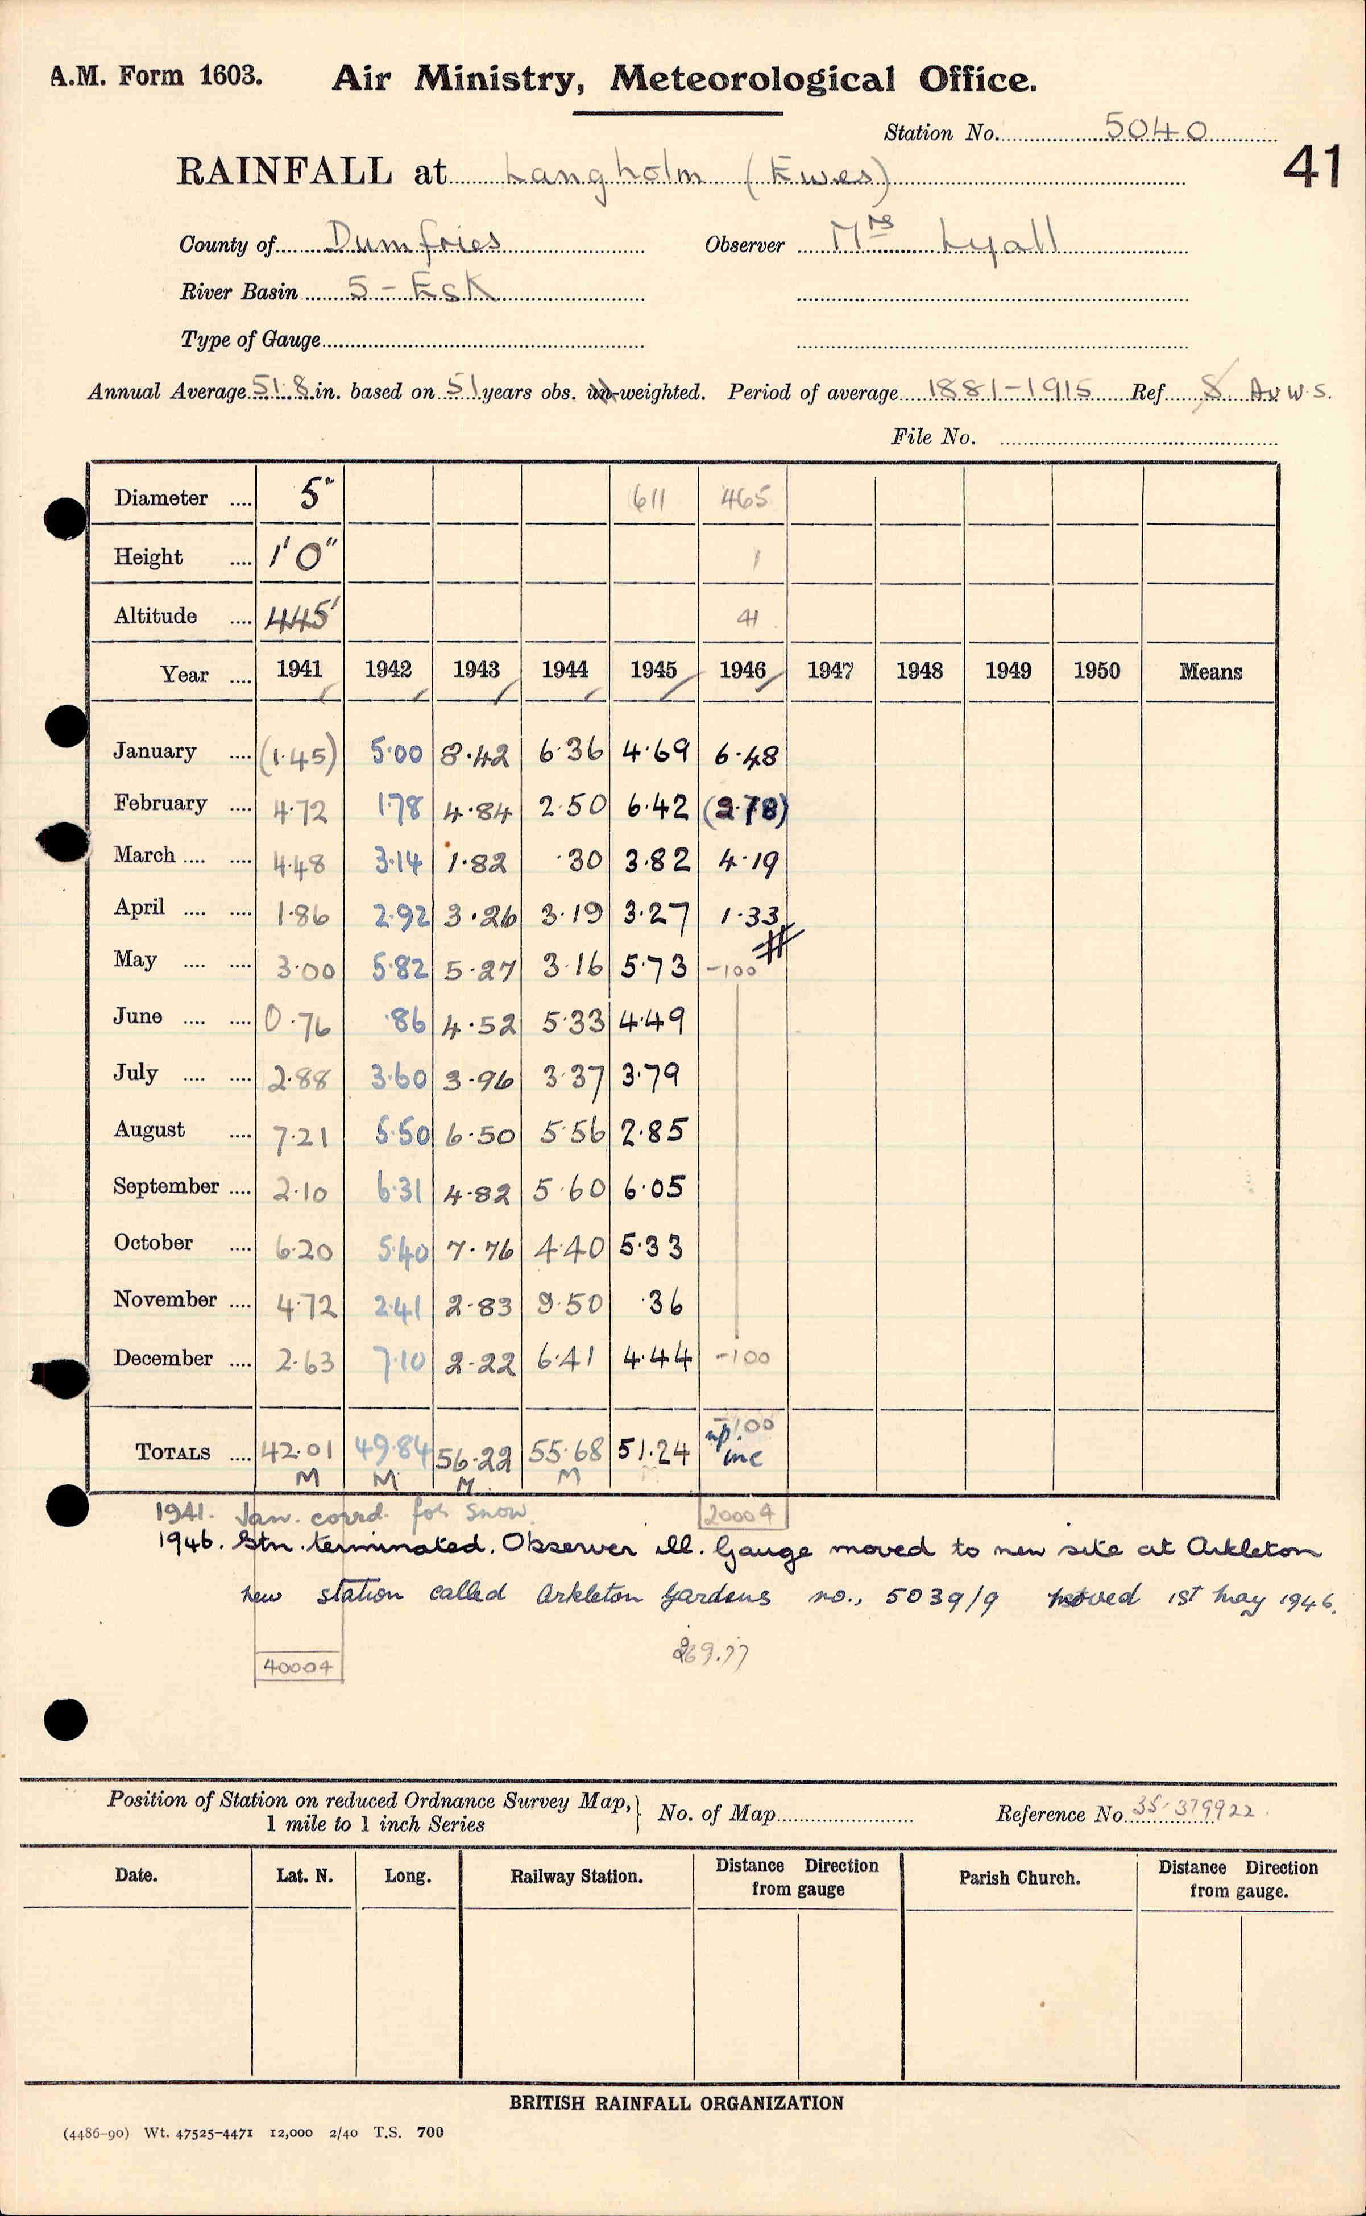 A.M. Form 1603. Air Ministry, Meteorological Office.
Station No. 5040
41
RAINFALL at Langholm (Ewes)
County of Dumfries Observer Mrs Lyall
River Basin 5 - Esk
Type of Gauge
Annual Average 51.8 in. based on 51 years obs. un-weighted. Period of average 1881-1915 Ref. 8 Av W.S.
File No.
Diameter .... 5" 611 465
Height .... 1' 0" 1
Altitude .... 445' 41
Year .... 1941 1942 1943 1944 1945 1946 1947 1948 1949 1950 Means
January .... (1.45) 5.00 8.42 6.36 4.69 6.48
February .... 4.72 1.78 4.84 2.50 6.42 (2.78)
March .... .... 4.48 3.14 1.82 .30 3.82 4.19
April .... .... 1.86 2.92 3.26 3.19 3.27 1.33
May .... .... 3.00 5.82 5.27 3.16 5.73 -100
June .... .... 0.76 .86 4.52 5.33 4.49
July .... .... 2.88 3.60 3.96 3.37 3.79
August .... 7.21 5.50 6.50 5.56 2.85
September .... 2.10 6.31 4.82 5.60 6.05
October .... 6.20 5.40 7.76 4.40 5.33
November .... 4.72 2.41 2.83 9.50 .36
December .... 2.63 7.10 2.22 6.41 4.44 -100
TOTALS .... 42.01 49.84 56.22 55.68 51.24 -100
M M M M inc
1941. Jan. corrd. for snow. 20004
1946. Stn. terminated. Observer ill. Gauge moved to new site at Arkleton
new station called Arkleton Gardens no., 5039/9 moved 1st May 1946.
40004
Position of Station on reduced Ordnance Survey Map, 1 mile to 1 inch Series
No. of Map
Reference No. 35-379922
Date. Lat. N. Long. Railway Station. Distance Direction from gauge Parish Church. Distance Direction from gauge.
BRITISH RAINFALL ORGANIZATION
(4486-90) Wt. 47525-4471 12,000 2/40 T.S. 700